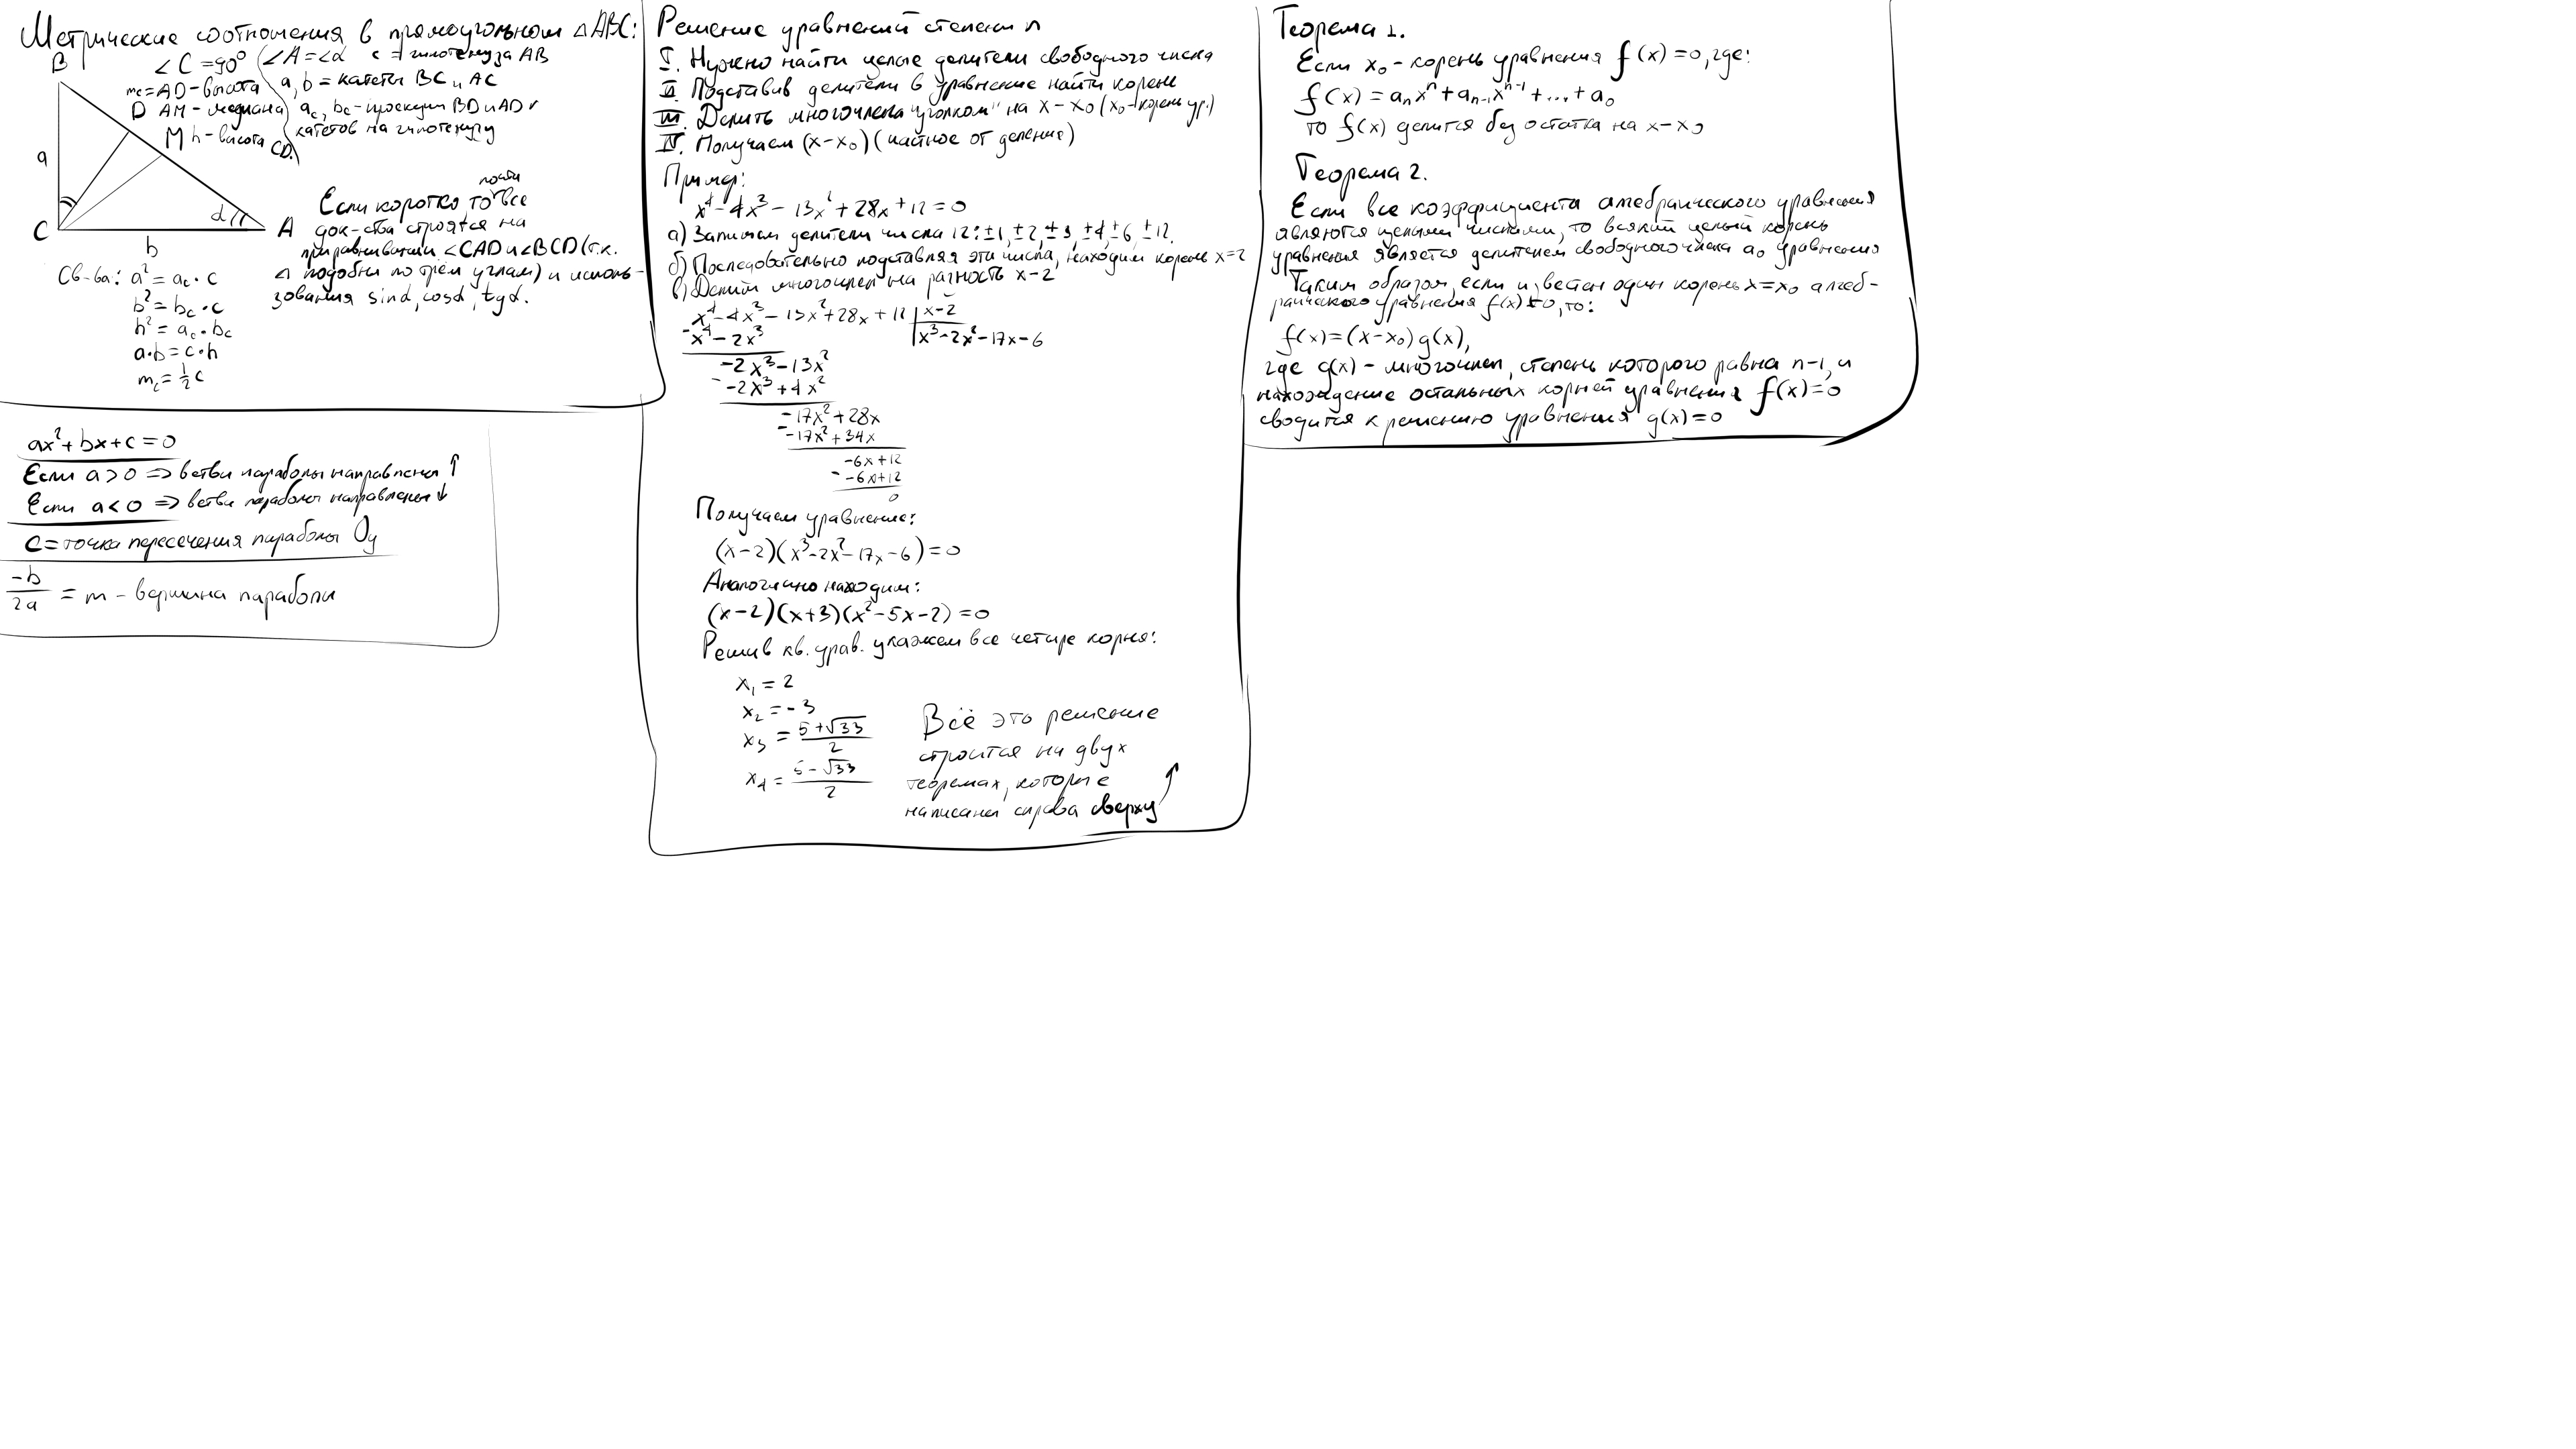 Метрические соотношения в прямоугольном △ABC:
∠C=90° ∠A=∠α c = гипотенуза AB
B
mc=AD-высота a, b = катеты BC и AC
D AM - медиана ac, bc - проекции BD и AD
M h - высота CD. катетов на гипотенузу
a
α
C
A
b
Если коротко то почти все
док-ства строятся на
приравнивании ∠CAD и ∠BCD (т.к.
△ подобны по трём углам) и исполь-
зования sinα, cosα, tgα.
Св-ва: a² = ac · c
b² = bc · c
h² = ac · bc
a·b = c·h
mc = ½c
ax²+bx+c=0
Если a>0 => ветви параболы направлены ↑
Если a<0 => ветви параболы направлены ↓
c = точка пересечения параболы Oy
-b/2a = m - вершина параболы
Решение уравнений степени n
I. Нужно найти целые делители свободного числа
II. Подставив делители в уравнение найти корень
III. Делить многочлена "уголком" на x-x₀ (x₀-корень ур.)
IV. Получаем (x-x₀)(частное от деление)
Пример:
x⁴-4x³-13x²+28x+12=0
а) Запишем делители числа 12: ±1, ±2, ±3, ±4, ±6, ±12.
б) Последовательно подставляя эти числа, находим корень x=2
в) Делим многочлен на разность x-2
x⁴-4x³-13x²+28x+12 | x-2
-x⁴-2x³ x³-2x²-17x-6
-2x³-13x²
- -2x³+4x²
-17x²+28x
- -17x²+34x
-6x+12
- -6x+12
0
Получаем уравнение:
(x-2)(x³-2x²-17x-6)=0
Аналогично находим:
(x-2)(x+3)(x²-5x-2)=0
Решив кв. урав. укажем все четыре корня:
x₁ = 2
x₂ = -3
x₃ = (5+√33)/2
x₄ = (5-√33)/2
Всё это решение
строится на двух
теоремах, которые
написаны справа сверху ↑
Теорема 1.
Если x₀ - корень уравнения f(x)=0, где:
f(x) = aₙxⁿ+aₙ₋₁xⁿ⁻¹+...+a₀
то f(x) делится без остатка на x-x₀
Теорема 2.
Если все коэффициента алгебраического уравнения
являются целыми числами, то всякий целый корень
уравнения является делителем свободного числа a₀ уравнения
Таким образом, если известен один корень x=x₀ алгеб-
раического уравнения f(x)=0, то:
f(x)=(x-x₀)g(x),
где g(x) - многочлен, степень которого равна n-1, и
нахождение остальных корней уравнения f(x)=0
сводится к решению уравнения g(x)=0